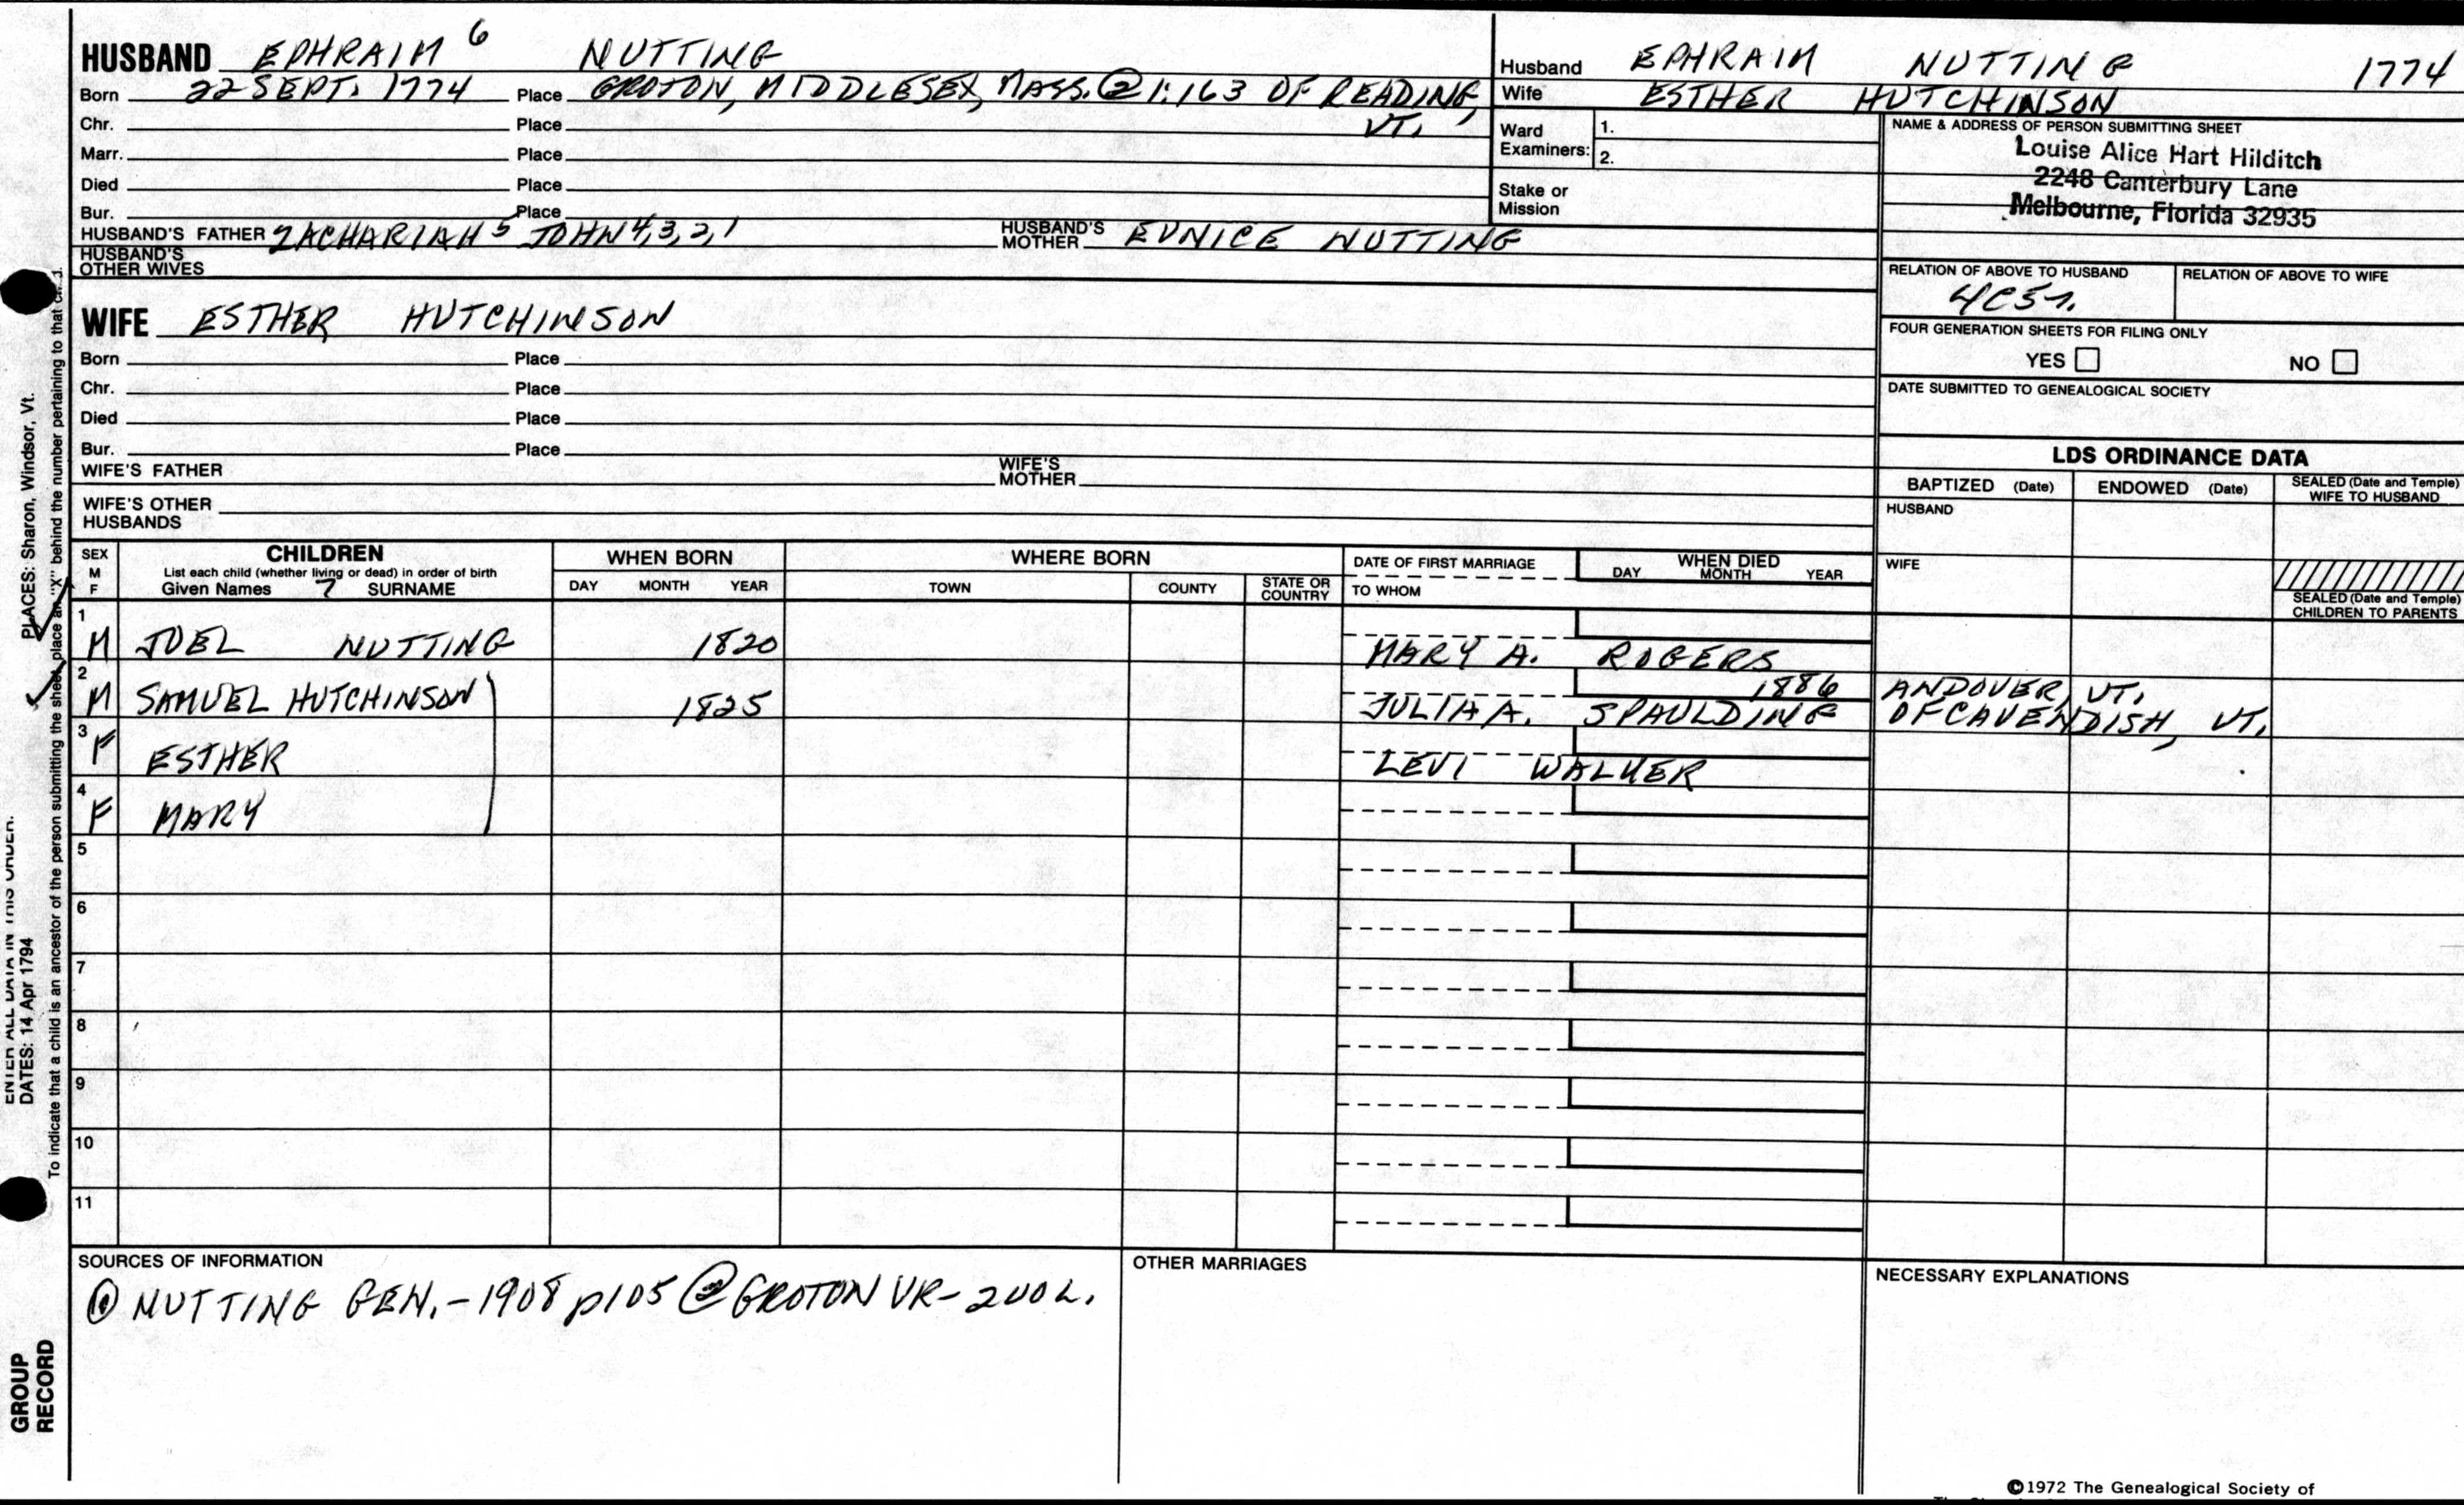 HUSBAND EPHRAIM 6 NUTTING
Born 22 SEPT. 1774 Place GROTON, MIDDLESEX, MASS. ② 1:163 OF READING, VT.
Chr. Place
Marr. Place
Died Place
Bur. Place
HUSBAND'S FATHER ZACHARIAH 5 JOHN 4, 3, 2, 1 HUSBAND'S MOTHER EUNICE NUTTING
HUSBAND'S OTHER WIVES
Husband EPHRAIM NUTTING 1774
Wife ESTHER HUTCHINSON
Ward Examiners: 1.
2.
Stake or Mission
NAME & ADDRESS OF PERSON SUBMITTING SHEET
Louise Alice Hart Hilditch
2248 Canterbury Lane
Melbourne, Florida 32935
RELATION OF ABOVE TO HUSBAND RELATION OF ABOVE TO WIFE
FOUR GENERATION SHEETS FOR FILING ONLY
YES NO
DATE SUBMITTED TO GENEALOGICAL SOCIETY
WIFE ESTHER HUTCHINSON
Born Place
Chr. Place
Died Place
Bur. Place
WIFE'S FATHER WIFE'S MOTHER
WIFE'S OTHER HUSBANDS
LDS ORDINANCE DATA
BAPTIZED (Date) ENDOWED (Date) SEALED (Date and Temple) WIFE TO HUSBAND
HUSBAND
WIFE
SEALED (Date and Temple) CHILDREN TO PARENTS
SEX M F
CHILDREN
List each child (whether living or dead) in order of birth
Given Names 7 SURNAME
WHEN BORN
DAY MONTH YEAR
WHERE BORN
TOWN COUNTY STATE OR COUNTRY
DATE OF FIRST MARRIAGE
TO WHOM
WHEN DIED
DAY MONTH YEAR
1 M JOEL NUTTING 1820 MARY A. ROGERS
2 M SAMUEL HUTCHINSON 1825 1886 ANDOVER, VT.
JULIA A. SPAULDING OF CAVENDISH, VT.
3 F ESTHER LEVI WALKER
4 F MARY
5
6
7
8
9
10
11
SOURCES OF INFORMATION
① NUTTING GEN. - 1908 p105 ② GROTON VR - 2 VOL.
OTHER MARRIAGES
NECESSARY EXPLANATIONS
©1972 The Genealogical Society of
ENTER ALL DATA IN THIS ORDER.
DATES: 14 Apr 1794
PLACES: Sharon, Windsor, Vt.
To indicate that a child is an ancestor of the person submitting the sheet, place an "X" behind the number pertaining to that
GROUP RECORD